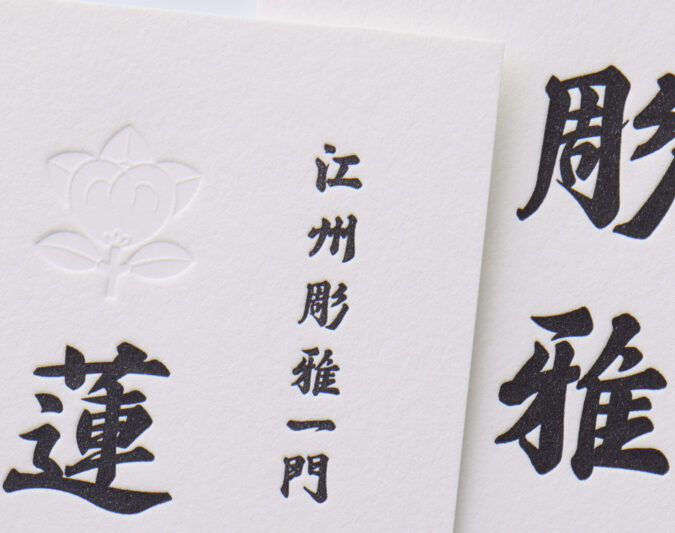 彫雅
江州彫雅一門
蓮